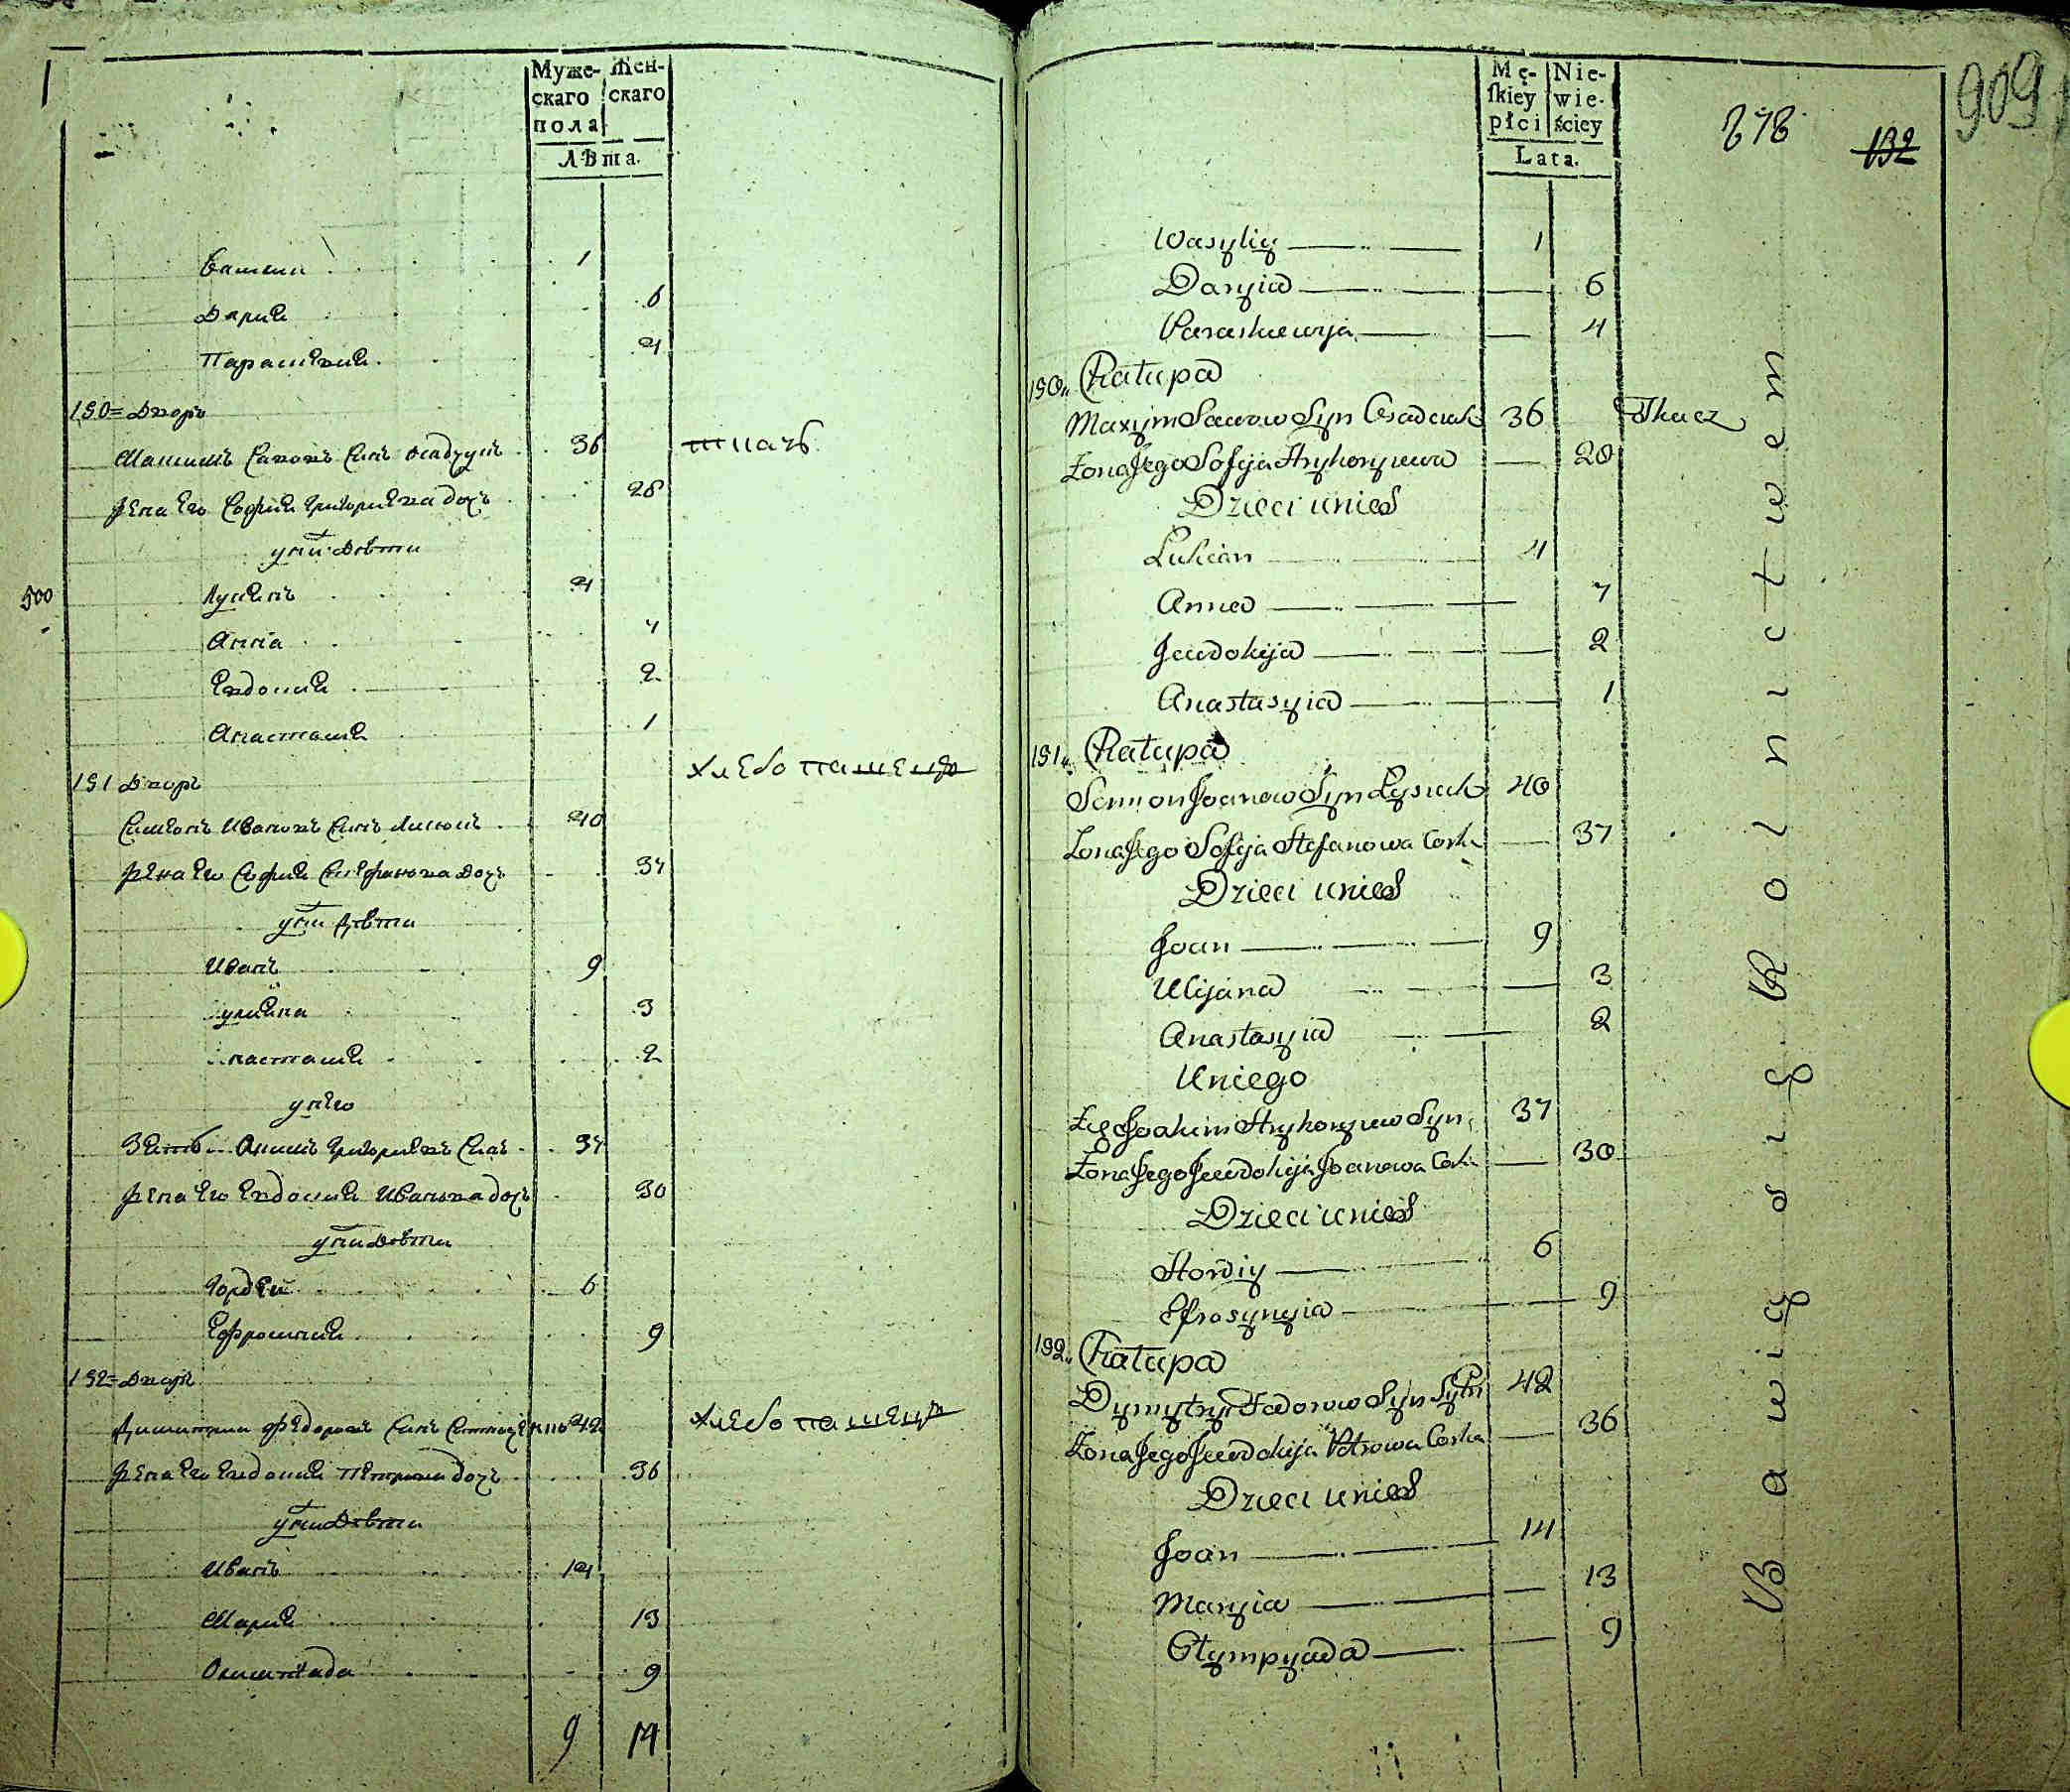 Муже-
скаго
пола
Жен-
скаго
Лѣта.
Василий 1
Дария 6
Параскевия 4
190 = Дворъ
Максимъ Савовъ Синъ Осадчукъ 36 ткачь
Жена Его София Григориева дочь 28
у них Дѣти
Лукиянъ 4
500
Анна 7
Евдокия 2
Анастасия 1
191 Дворъ хлебопашецъ
Симеонъ Ивановъ Синъ Лисюкъ 40
Жена Его София Стефанова Дочь 37
у них Дѣти
Иванъ 9
Улияна 3
настасия 2
у него
Зять Аким Григориевъ Синъ 37
Жена Его Евдокия Иванова дочь 30
у них Дѣти
Гордей 6
Ефросиния 9
192 = Дворъ
Димитрий Федоровъ Синъ 42 хлебопашецъ
Жена Его Евдокия Петрова дочь 36
у них Дѣти
Иванъ 14
Мария 13
Олимпияда 9
9 14
Mę-
skiey
płci
Nie-
wie-
ściey
Lata.
878
132
909
Wasyliy 1
Daryia 6
Paraskiewyja 4
190. Chałupa
Maxym Sawow Syn Osadczuk 36 Tkacz
Żona Jego Sofija Hryhoryiewa 28
Dzieci unich
Lukian 4
Anna 7
Jewdokija 2
Anastasyia 1
191. Chałupa
Semion Joanow Syn Łysiuk 40
Żona Jego Sofija Stefanowa Corka 37
Dzieci unich
Joan 9
Ulijana 3
Anastasyia 2
Uniego
Zięć Joakim Hryhoryiew Syn 37
Żona Jego Jewdokija Joanowa Corka 30
Dzieci unich
Hordiy 6
Efrosynyia 9
192. Chałupa
Dymytryi Fedorow Syn 42
Żona Jego Jewdokija Petrowa Corka 36
Dzieci unich
Joan 14
Maryia 13
Olympyada 9
Bawią się Rolnictwem